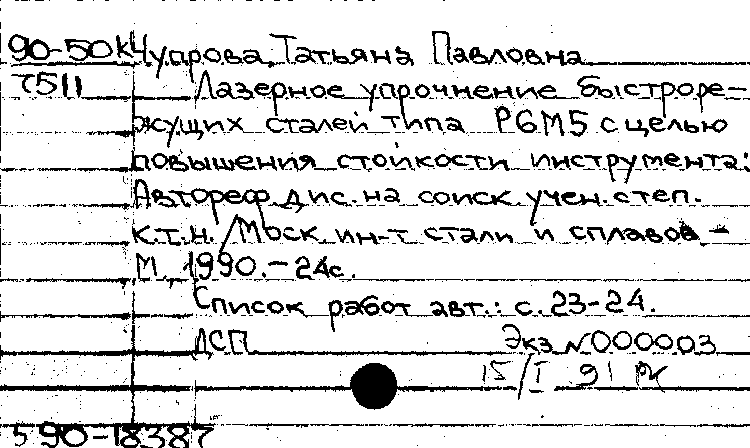 90-50к Чупрова, Татьяна Павловна
7511 Лазерное упрочнение быстроре-
жущих сталей типа Р6М5 с целью
повышения стойкости инструмента:
Автореф. дис. на соиск. учен. степ.
к.т.н. /Моск. ин-т стали и сплавов -
М. 1990. - 24с.
Список работ авт.: с. 23-24.
ДСП Экз N000003
15/I 91 РК
5 90-18387